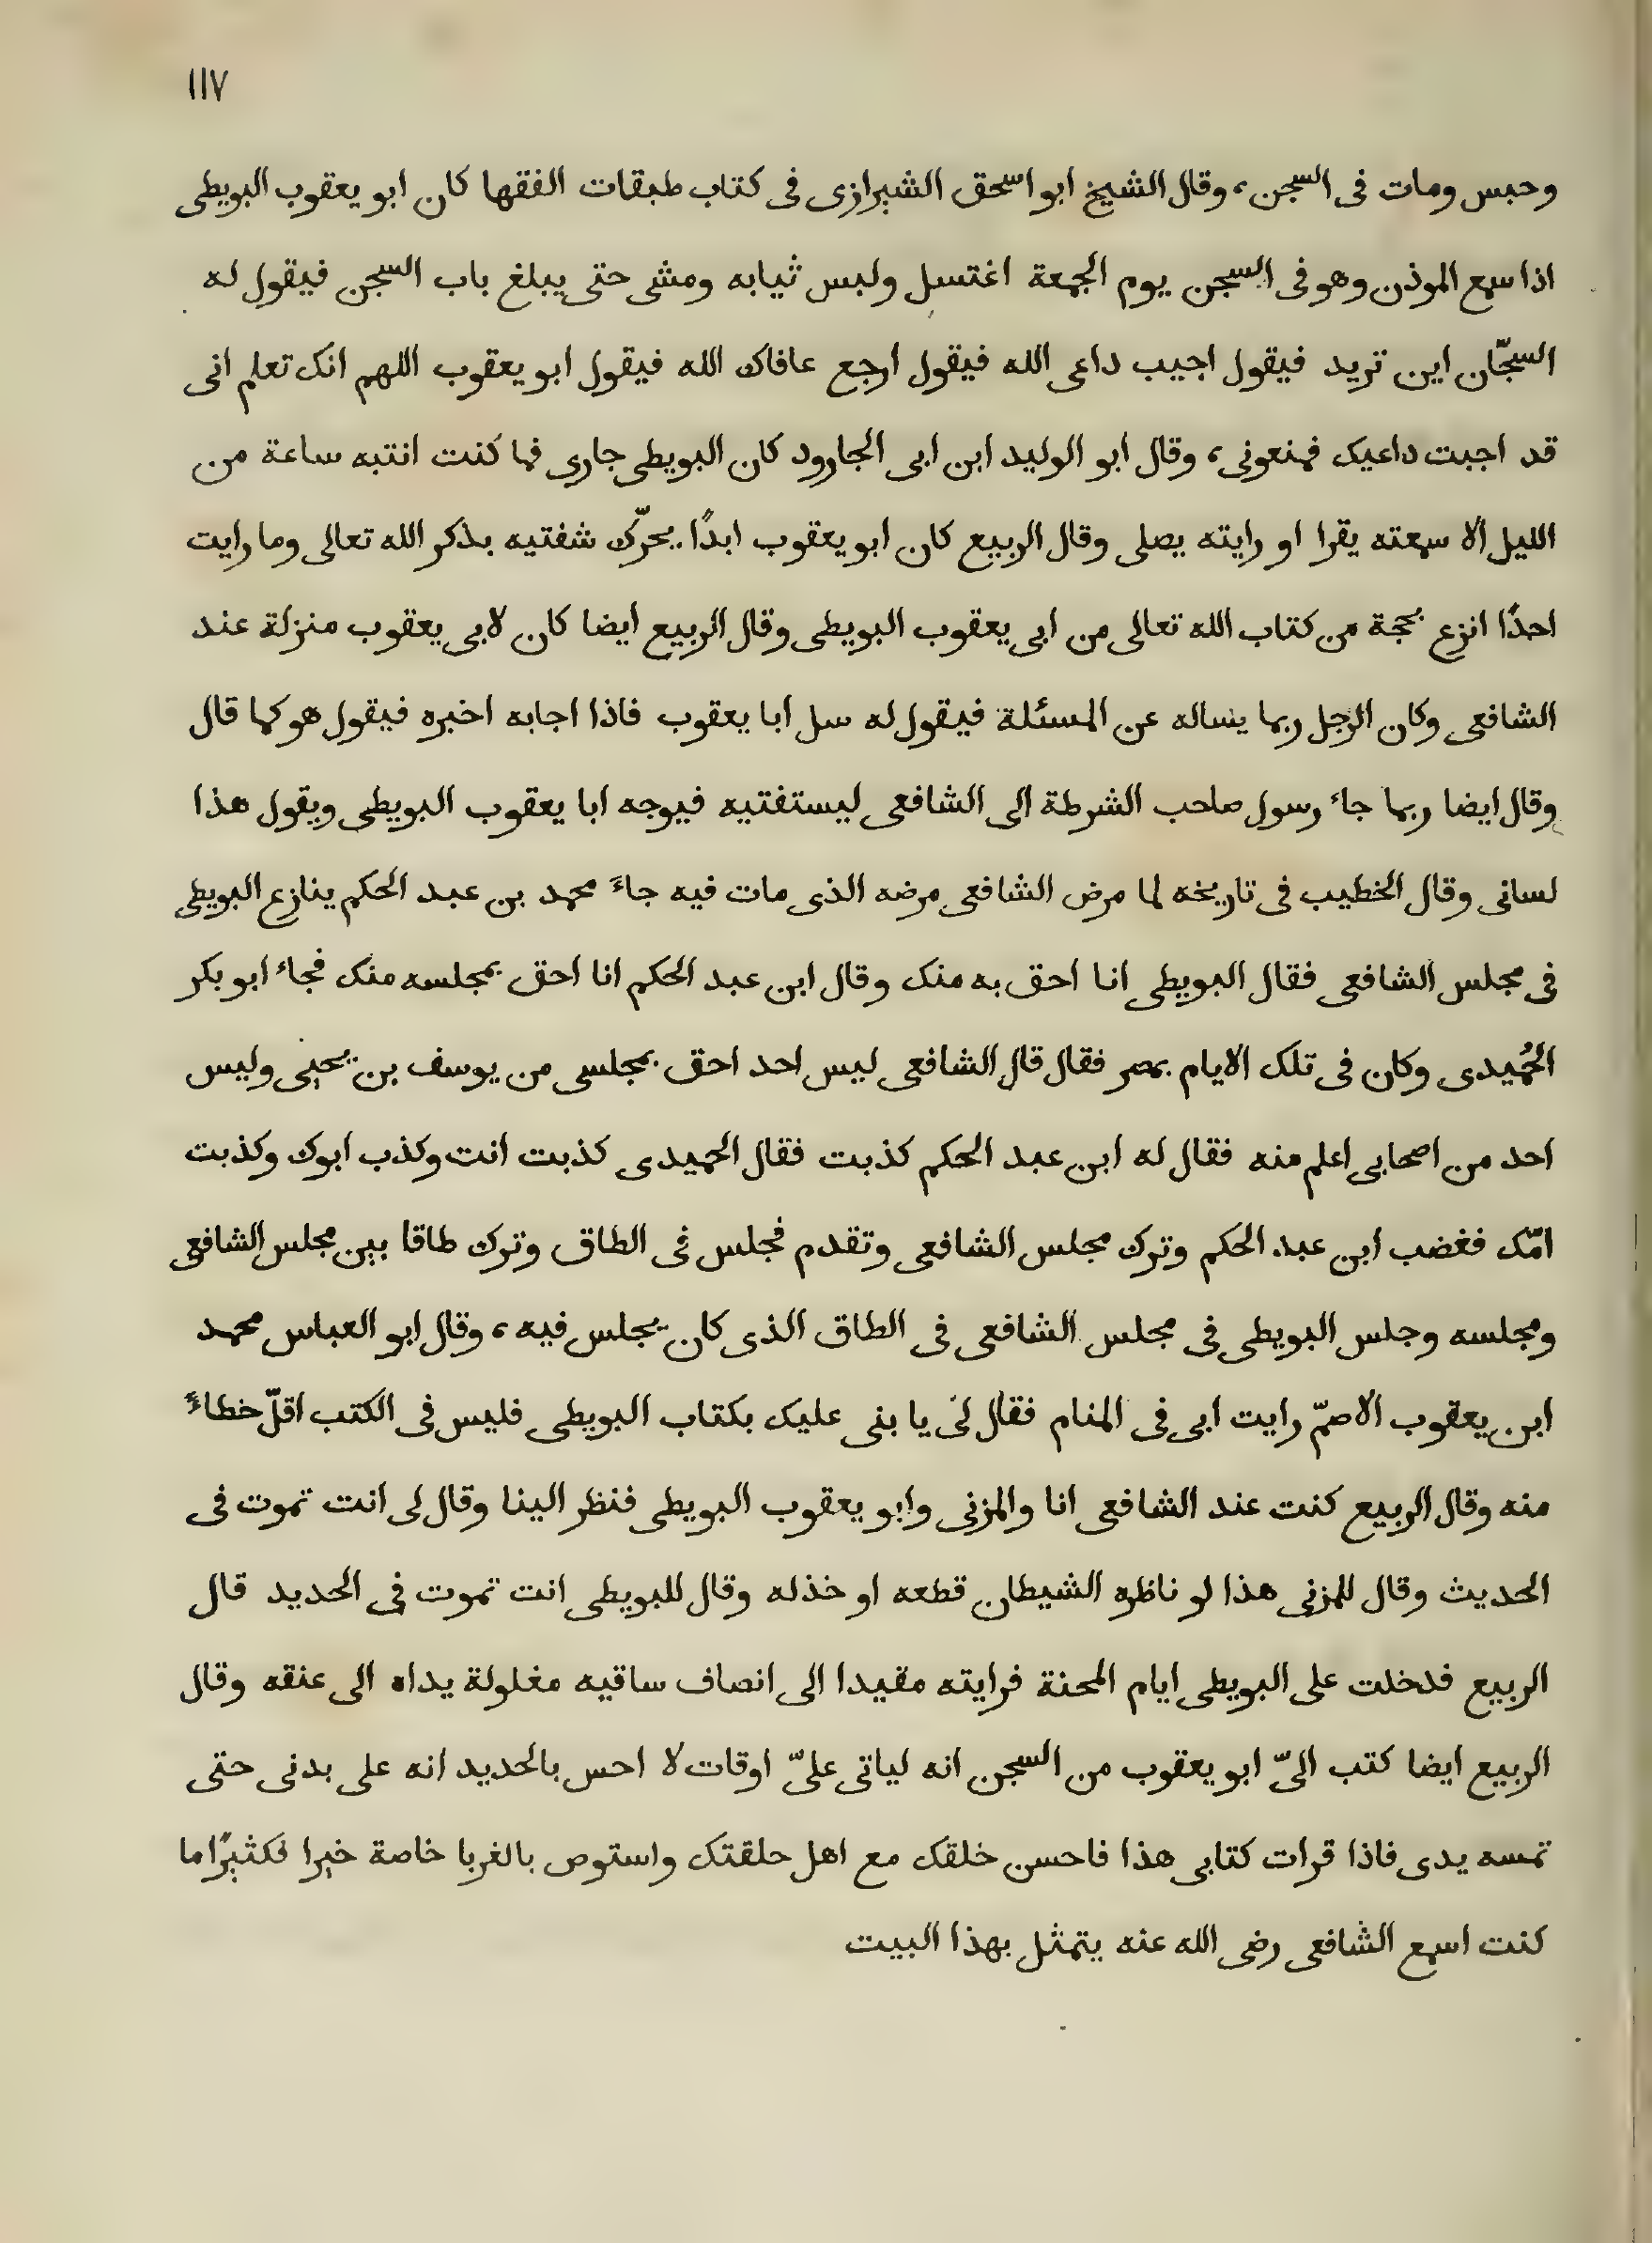 ١١٧
وحبس ومات فى السجن، وقال الشيخ ابو اسحق الشيرازى فى كتاب طبقات الفقها كان ابو يعقوب البويطى
اذا سمع الموذن وهو فى السجن يوم الجمعة اغتسل ولبس ثيابه ومشى حتى يبلغ باب السجن فيقول له
السجّان اين تريد فيقول اجيب داعى الله فيقول ارجع عافاك الله فيقول ابو يعقوب اللهم انك تعلم انى
قد اجبت داعيك فمنعونى، وقال ابو الوليد ابن ابى الجارود كان البويطى جارى فما كنت انتبه ساعة من
الليل الا سمعته يقرا او رايته يصلى وقال الربيع كان ابو يعقوب ابدًا يحرّك شفتيه بذكر الله تعالى وما رايت
احدًا انزع بحجة من كتاب الله تعالى من ابى يعقوب البويطى وقال الربيع ايضا كان لابى يعقوب منزلة عند
الشافعى وكان الرجل ربما يساله عن المسئلة فيقول له سل ابا يعقوب فاذا اجابه اخبره فيقول هو كما قال
وقال ايضا ربما جاء رسول صاحب الشرطة الى الشافعى ليستفتيه فيوجه ابا يعقوب البويطى ويقول هذا
لسانى وقال الخطيب فى تاريخه لما مرض الشافعى مرضه الذى مات فيه جاءَ محمد بن عبد الحكم ينازع البويطى
فى مجلس الشافعى فقال البويطى انا احق به منك وقال ابن عبد الحكم انا احق بمجلسه منك فجاء ابو بكر
الحُميدى وكان فى تلك الايام بمصر فقال قال الشافعى ليس احد احق بمجلسى من يوسف بن يحيى وليس
احد من اصحابى اعلم منه فقال له ابن عبد الحكم كذبت فقال الحميدى كذبت انت وكذب ابوك وكذبت
امّك فغضب ابن عبد الحكم وترك مجلس الشافعى وتقدم فجلس فى الطاق وترك طاقا بين مجلس الشافعى
ومجلسه وجلس البويطى فى مجلس الشافعى فى الطاق الذى كان يجلس فيه، وقال ابو العباس محمد
ابن يعقوب الاصمّ رايت ابى فى المنام فقال لى يا بنى عليك بكتاب البويطى فليس فى الكتب اقلّ خطاءً
منه وقال الربيع كنت عند الشافعى انا والمزنى وابو يعقوب البويطى فنظر الينا وقال لى انت تموت فى
الحديث وقال للمزنى هذا لو ناظره الشيطان قطعه او خذله وقال للبويطى انت تموت فى الحديد قال
الربيع فدخلت على البويطى ايام المحنة فرايته مقيدا الى انصاف ساقيه مغلولة يداه الى عنقه وقال
الربيع ايضا كتب الىّ ابو يعقوب من السجن انه لياتى علىّ اوقات لا احس بالحديد انه على بدنى حتى
تمسه يدى فاذا قرات كتابى هذا فاحسن خلقك مع اهل حلقتك واستوص بالغربا خاصة خيرا فكثيرًا ما
كنت اسمع الشافعى رضى الله عنه يتمثل بهذا البيت